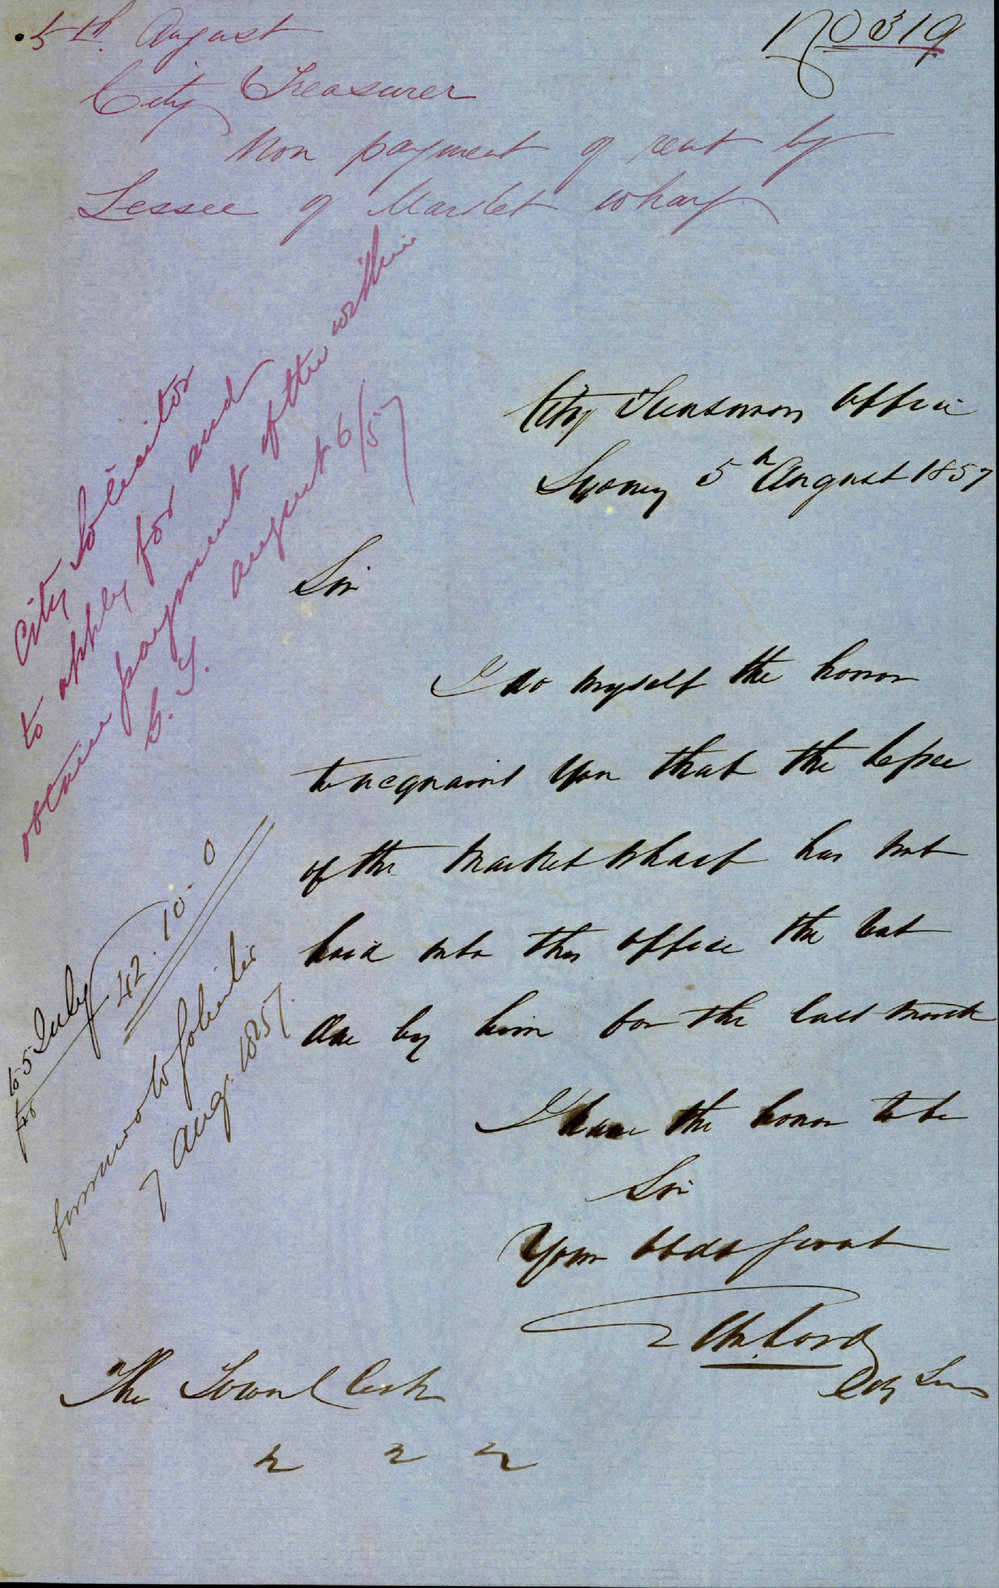 5th. August
No 319
City Treasurer
Non payment of rent by
Lessee of Market Wharf
City Solicitor
to apply for and
obtain payment of the within
C. T. August 6/57
City Treasurers Office
Sydney 5th August 1857
Sir
I do myself the honor
to acquaint you that the Lessee
of the Market Wharf has not
paid into this office the rent
due by him for the last month
to 5 July
42. 10. 0
forward to Solicitor
7 Aug. 1857.
I have the honor to be
Sir
Your obdt Servant
Lord
City Treas
The Town Clerk